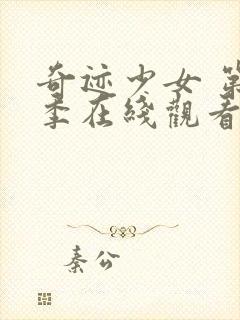 奇迹少女 第
季在线觀看
秦公